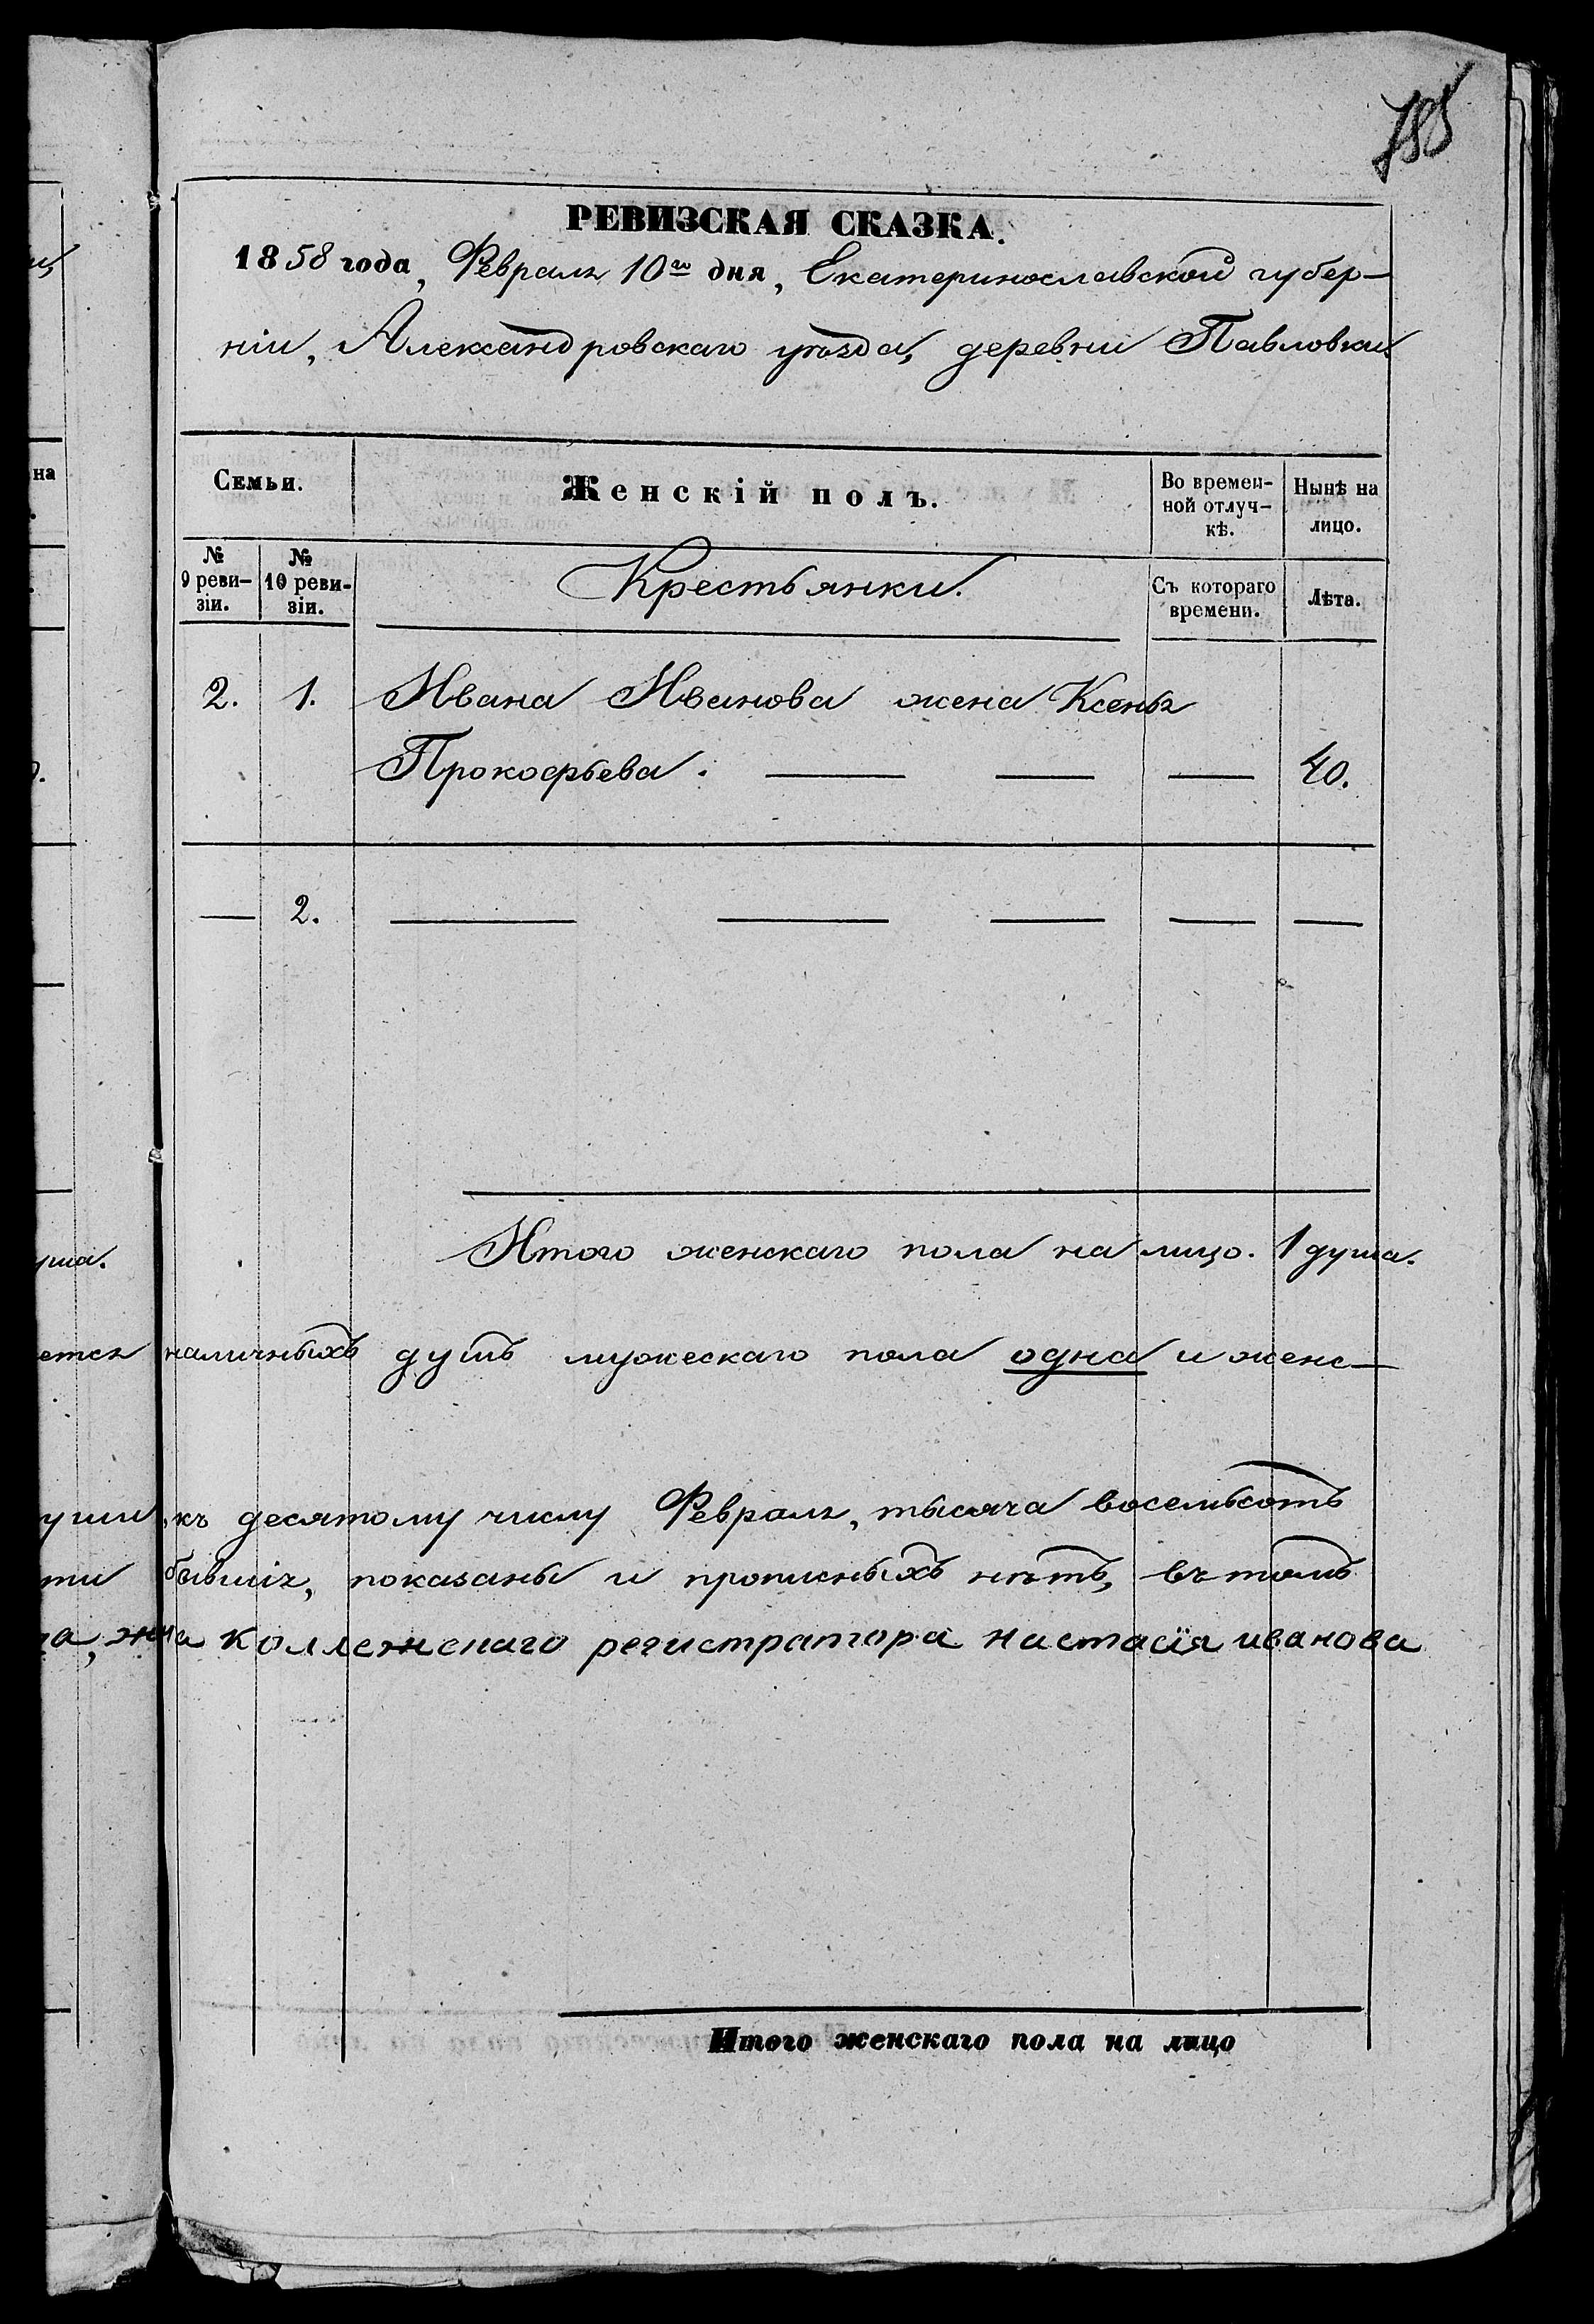 785
РЕВИЗСКАЯ СКАЗКА.
1858 года, Февраля 10го дня, Екатеринославской губер-
ніи, Александровскаго уѣзда, деревни Павловки
на
Семьи.
Женскій полъ.
Во времен-
ной отлуч-
кѣ.
Нынѣ на
лицо.
№
9 реви-
зіи.
№
10 реви-
зіи.
Крестьянки.
Съ котораго
времени.
Лѣта.
2. 1. Ивана Иванова жена Ксенья
Прокофьева. — — — 40.
— 2. — — — — —
Итого женскаго пола на лицо. 1 душа.
наличныхъ душъ мужескаго пола одна и женс-
къ десятому числу Февраля, тысяча восемьсотъ
бывшія, показаны и прописныхъ нѣтъ, въ томъ
жна коллежскаго регистратора настасія иванова
Итого женскаго пола на лицо